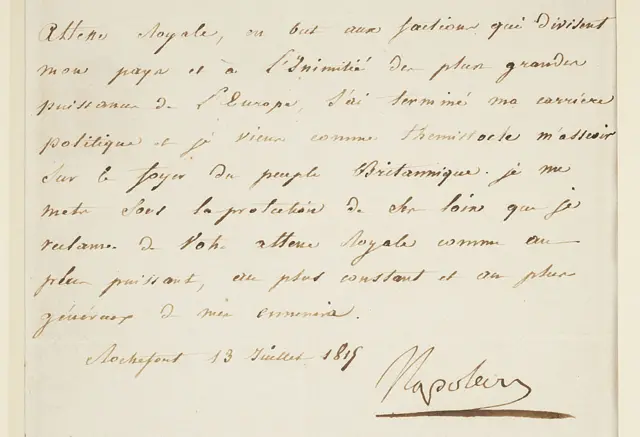 Altesse Royale, en but aux factions qui divisent
mon pays et à l'Inimitié des plus grandes
puissances de l'Europe, j'ai terminé ma carrière
politique et je viens comme themistocle m'asseoir
sur le foyer du peuple Britannique. je me
mets sous la protection de ses loix que je
reclame de Votre altesse Royale comme au
plus puissant, au plus constant et au plus
généreux de mes ennemis.
Rochefort 13 Juillet 1815
Napoleon